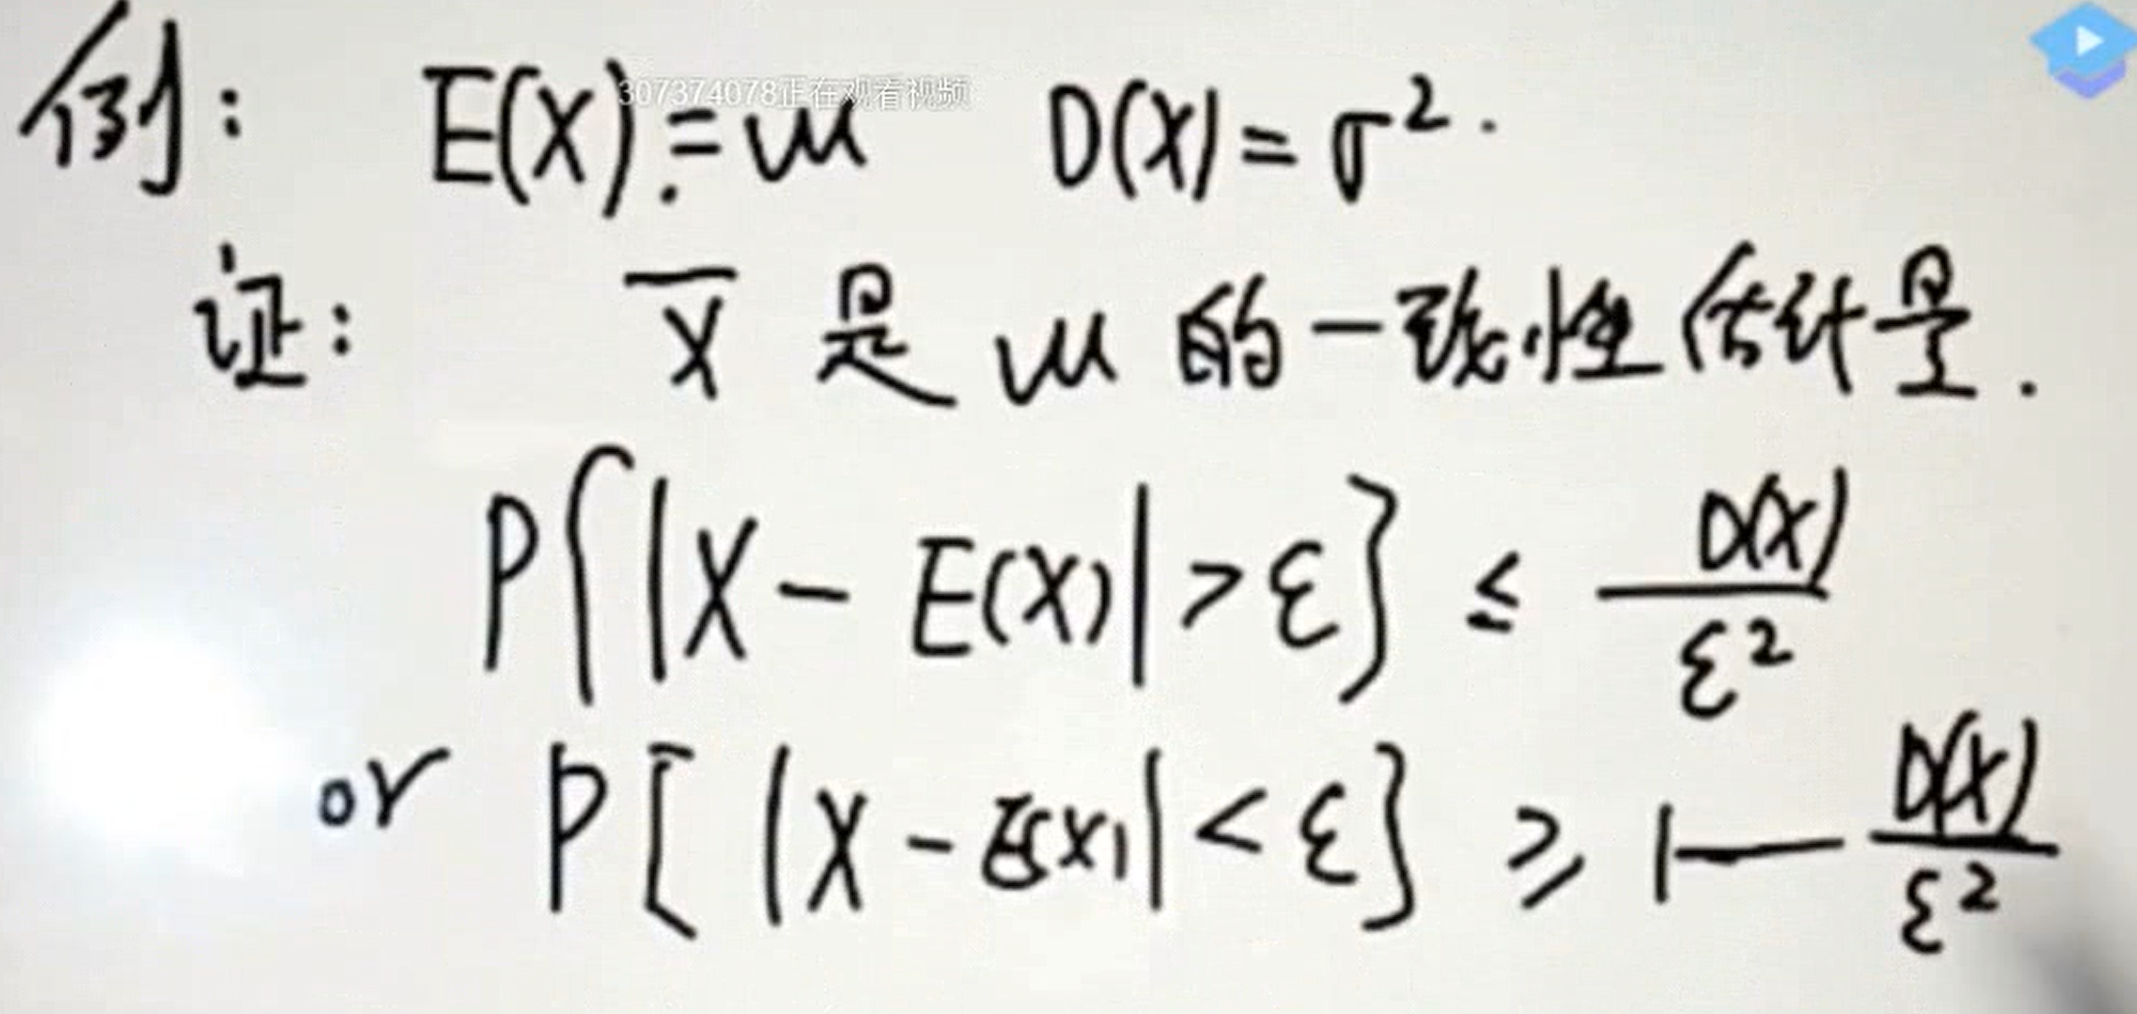 例: E(X) = μ D(X) = σ².
307374078正在观看视频
证: X̄ 是 μ 的一致性估计量.
P{|X - E(X)| > ε} ≤ D(X)/ε²
or P[|X - E(X)| < ε} ≥ 1 — D(X)/ε²